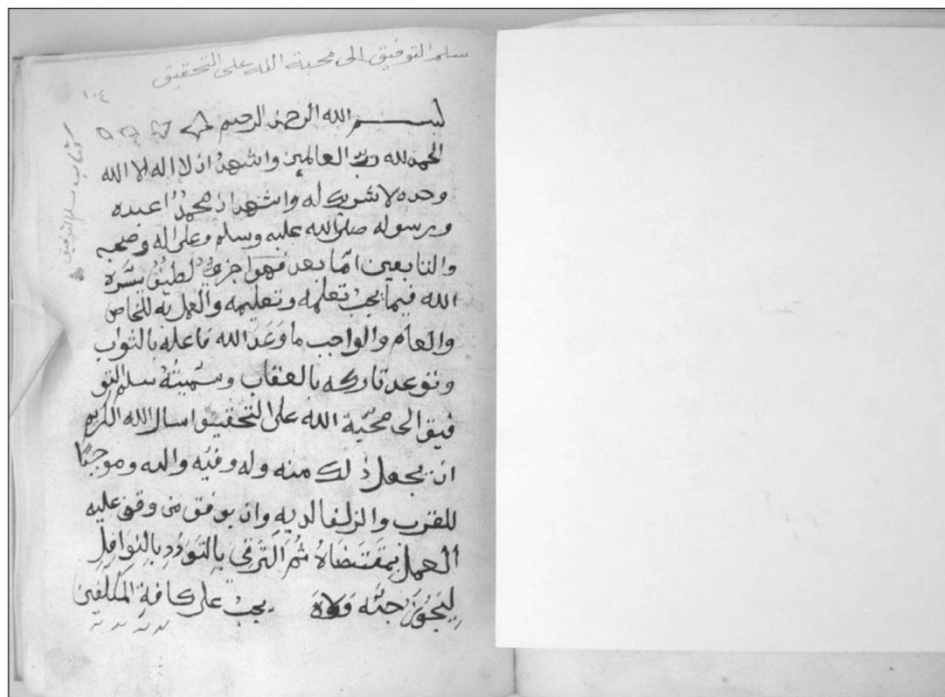 سلم التوفيق الى محبة الله على التحقيق
١٠٤
كتاب سلم التوفيق
بسم الله الرحمن الرحيم
الحمد لله رب العالمين واشهد ان لا اله الا الله
وحده لا شريك له واشهد ان محمدًا عبده
ورسوله صلى الله عليه وسلم وعلى اله وصحبه
والتابعين امّا بعد فهوا جزءٌ لطيفٌ يسّره
الله فيما يجبُ تعلمه وتعليمه والعمل به للخاص
والعام والواجب ما وَعَدَ الله فاعله بالثواب
وتوعد تاركه بالعقاب وسمّيتُهُ سلم التو
فيق الى محبّة الله على التحقيق اسال الله الكريم
ان يجعل ذلك منه وله وفيه واليه وموجبًا
للقرب والزلفا لديه وان يوفق من وقف عليه
العمل بمقتضاهُ ثم التَّرقي بِالتَّوَدُدِ بِالنوافِلِ
لِيَحُوزَ حبّه وَولاهَ يجبُ على كافةِ المكلفين